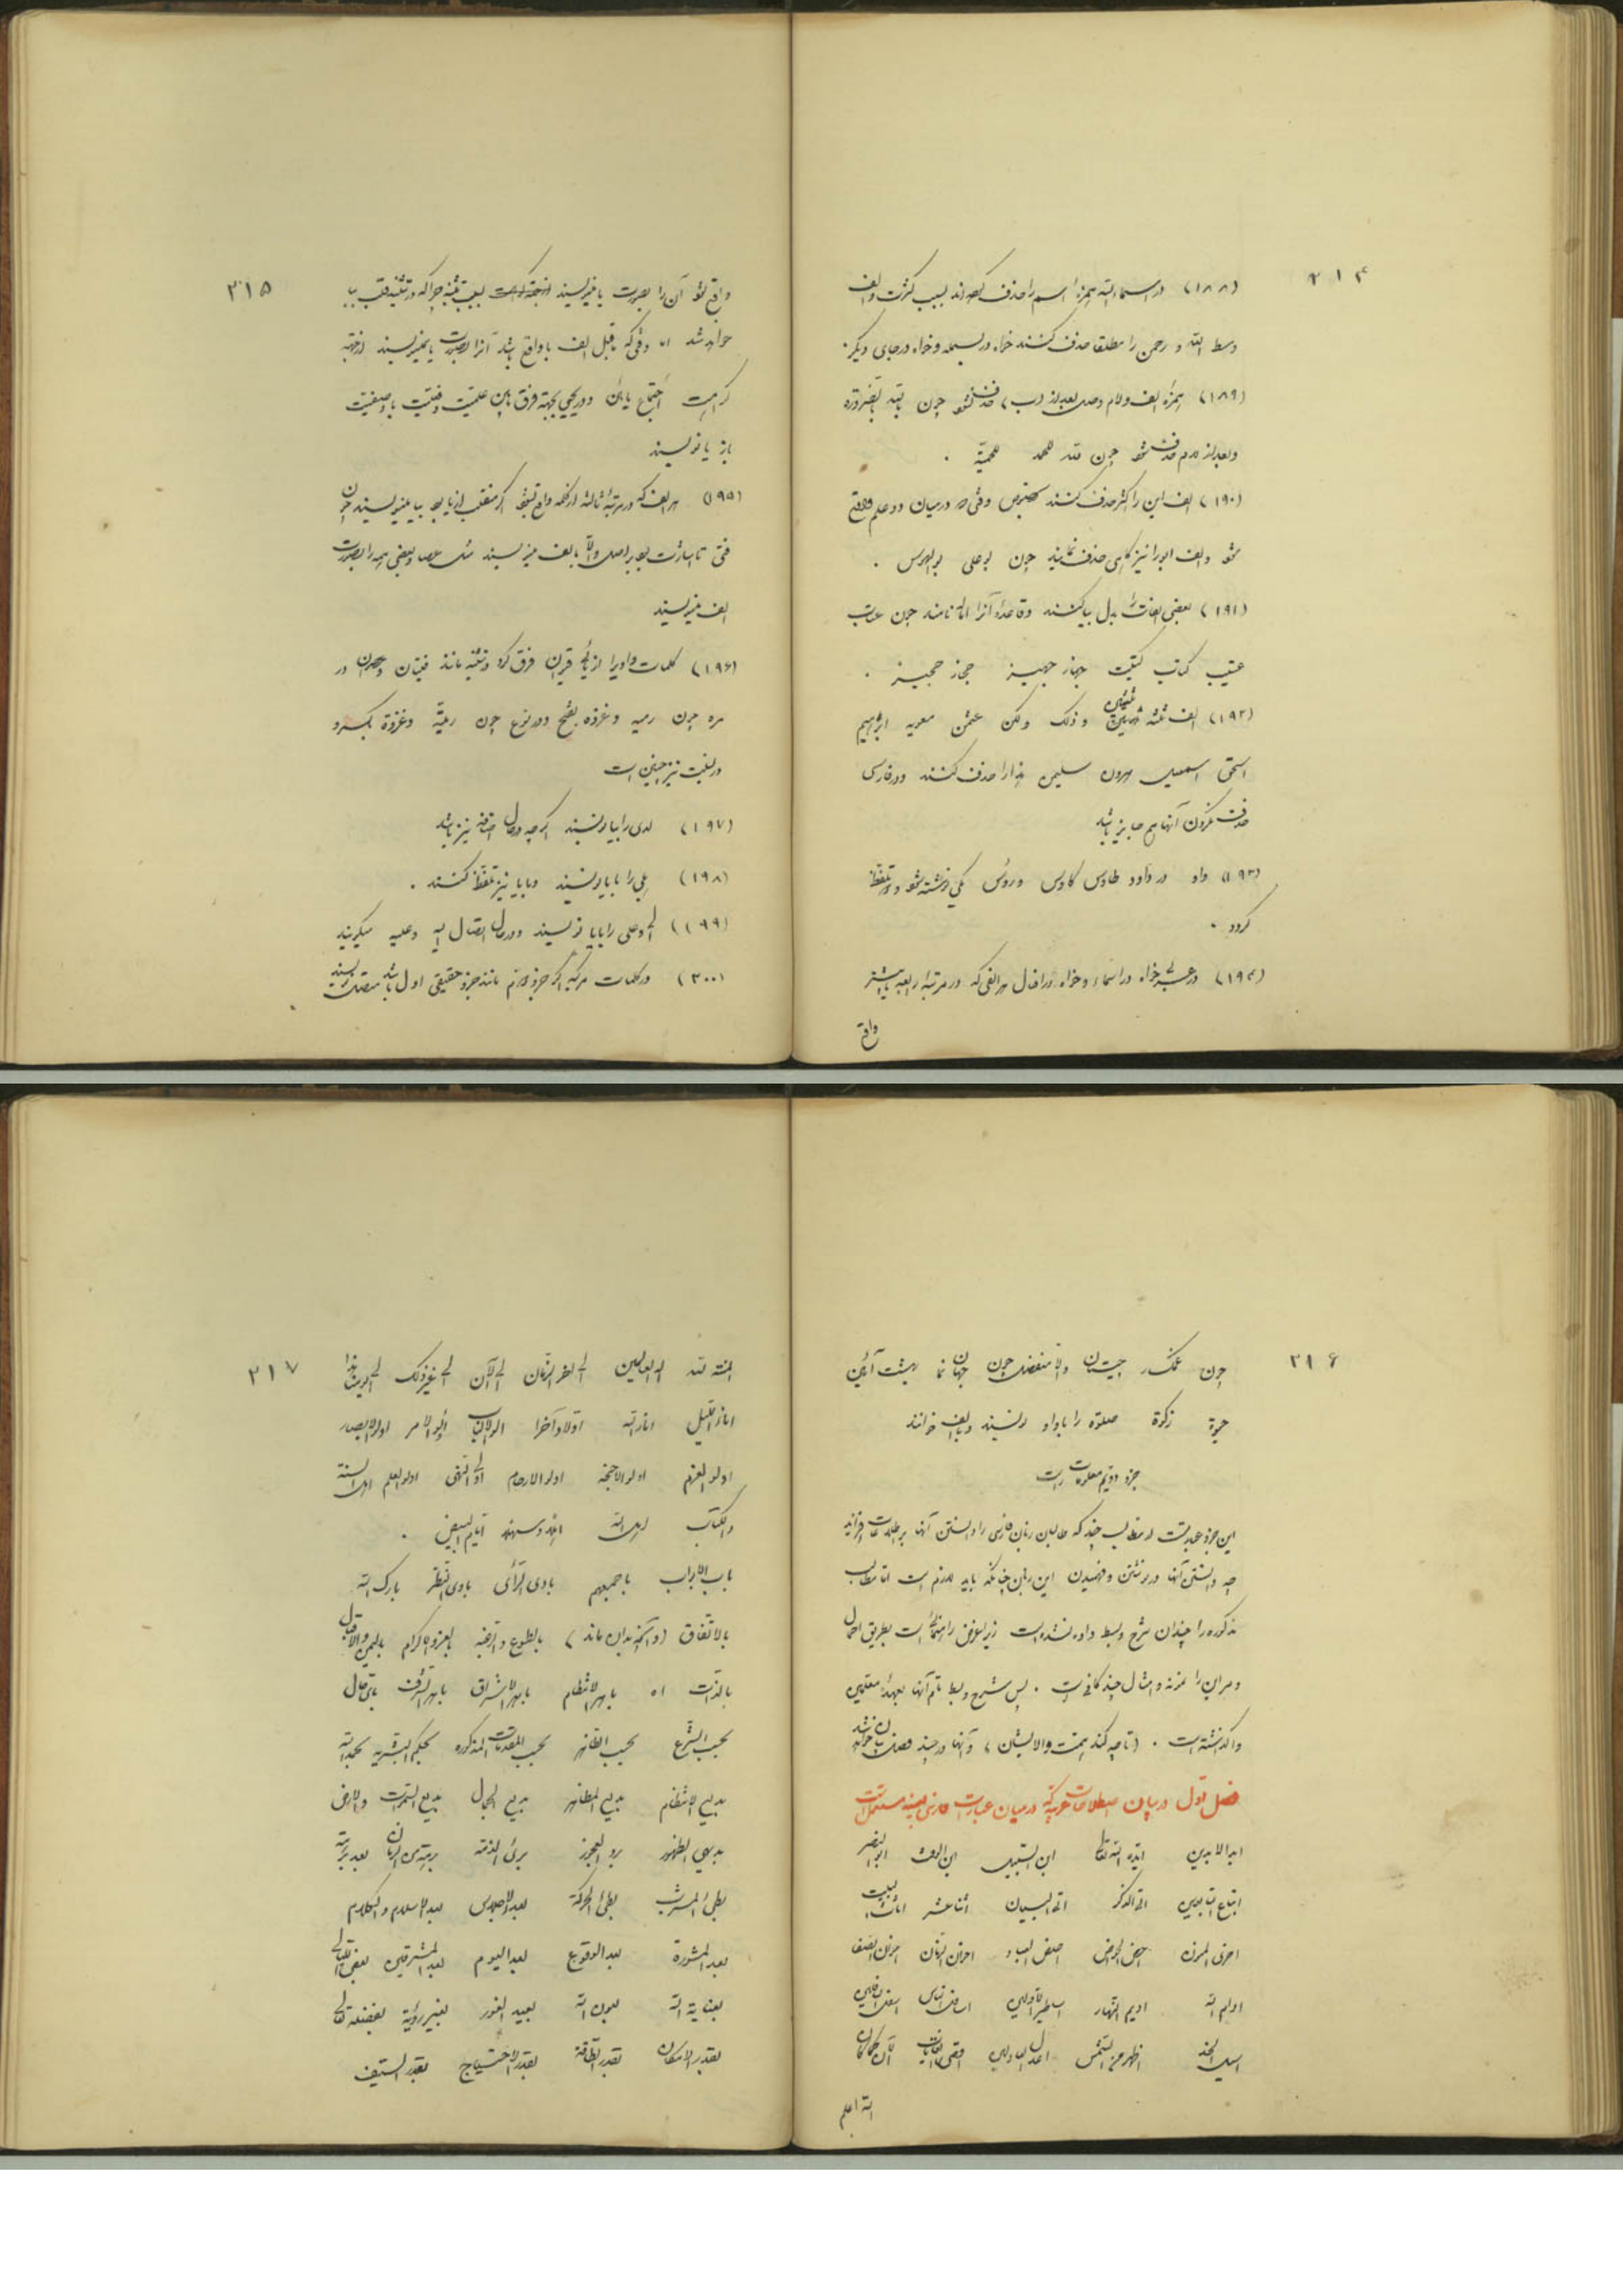 ۳۱۴
(۱۸۸) در اسماء الله همزه اسم را حذف کرده‌اند بسبب کثرت والف
وسط الله و رحمن را مطلقا حذف کنند خواه در بسمله وخواه در جای دیگر.
(۱۸۹) همزه الف ولام وصل بعد از (ب) حذف نشود چون بالله بالضرورة
وبعد از لام حذف شود چون لله للحمد للحمیة .
(۱۹۰) الف ابن را اکثر حذف کنند بخصوص وقتی که در میان دو علم واقع
شود والف ابو را نیز گاهی حذف نمایند چون بوعلی بوالهوس .
(۱۹۱) بعضی الفات را بدل بیا کنند وقاعدهٔ آنرا اماله نامند چون عتاب
عتیب کتاب کتیب جهاز جهیز حجاز حجیز .
(۱۹۲) الف ثلثه ثلثین وذلک ولکن عثمن معویه ابرهیم
اسحق اسمعیل هرون سلیمن هذا را حذف کنند ودر فارسی
حذف نکردن آنها هم جایز باشد
(۱۹۳) واو در داود طاوس کاوس ورؤس یکی نوشته شود ودو تلفظ
گردد .
(۱۹۴) در عربی خواه در اسماء وخواه در افعال هر الفی که در مرتبهٔ رابعه یا بیشتر
واقع
۳۱۵
واقع شود آن را بصورت یا مینویسند بسبب تثنیه چراکه در تثنیه قلب بیا
خواهد شد اما وقتی که ماقبل الف یا واقع باشد آنرا بصورت یا نمینویسند از جهة
کراهت اجتماع یائین ودر یحیی بجهة فرق بین علمیت وفعلیت یا وصفیت
باز یا نویسند
(۱۹۵) هر الف که در مرتبهٔ ثالثه از کلمه واقع شود اگر منقلب از یا بود بیا مینویسند چون
فتی تا اشارت بود بر اصل والا بالف مینویسند مثل عصا وبعضی همه را بصورت
الف مینویسند
(۱۹۶) کلمات واوی را از یائی توان فرق کرد در تثنیه مانند فتیان وعصوان ودر
مره چون رمیه وغزوه بفتح ودر نوع چون رمیة وغزوة بکسر و
در نسبت نیز چنین است
(۱۹۷) لدی را بیا نویسند اگرچه در حال اضافه نیز باشد
(۱۹۸) بلی را با یا نویسند وبا یا نیز تلفظ کنند .
(۱۹۹) الی وعلی را با یا نویسند ودر حال اتصال الیه وعلیه میگویند
(۲۰۰) در کلمات مرکبه اگر جزو دوم مانند جزو حقیقی اول باشد متصل نویسند
۳۱۶
چون غمگسار چیستان والا منفصل چون جهان نما بهشت آئین
حیوة زکوة صلوة را با واو نویسند وبالف خوانند
جزو دویم معلومات است
این جزو عبارتست از مطالب چند که طالبان زبان فارسی را دانستن آنها بر اطلاعات افزاید
چه دانستن آنها در نوشتن وفهمیدن این زبان چنانکه باید لازم است اما مطالب
مذکوره را چندان شرح وبسط داده نشده است زیرا غرض راهنمائی است بطریق اجمال
وهر این را نمونه وامثال چند کافی است . پس شرح وبسط تام آنها بعهدهٔ معلمین
واگذاشته است . (تا چه کند همت والای‌شان) وآنها در چند فصل بیان خواهد شد
فصل اول در بیان اصطلاحات عربیه که در میان عبارت فارسی بعینه مستعمل است
ابد الابدین ایده الله تعالی ابن السبیل ابن الوقت ابو البصر
اتباع التابعین آتی الذکر آتی البیان اثنا عشر اثاث البیت
احدی المرة احسن العباد
ادام الله ادیم النهار اساطیر الاولین اسافل الناس اسفل السافلین
اسیل الخد اظهر من الشمس اعدل العادلین اقصی الغایات الآن کما کان
الله اعلم
۳۱۷
المنة لله اله العالمین الی آخر الزمان الی الآن الی غیر ذلک الی یومنا هذا
اناء اللیل اولا وآخرا اولو الالباب اولو الامر اولو الابصار
اولو العزم اولو الاجنحه اولو الارحام اولی النهی اولو العلم اهل السنة
والکتاب اهل الله ایام البیض .
باب الابواب باجمعهم بادی الرأی بادی النظر بارک الله
بالاتفاق (وآنچه بدان ماند) بالطوع والرغبه بالعز والاکرام بالیمن والاقبال
بالذات اه باهر الانتظام باهر الاشراق باهر الشرف بای حال
بحسب الشرع بحسب الظاهر بحسب المقدمات المذکوره بحکم البشریه بحمد الله
بدیع الانتظام بدیع المظاهر بدیع الجمال بدیع السموات والارض
بدیهی الظهور برد العجوز بریء الذمه
بطیء المشرب بطیء الحرکة بعد الاجلاس بعد السلام والکلام
بعد المشورة بعد الوقوع بعد الیوم بعد المشرقین
بعنایة الله بعون الله بعید الغور بغیر رؤیة بفضله تعالی
بقدر الامکان بقدر الطاقة بقدر الاحتیاج بقدر السیف